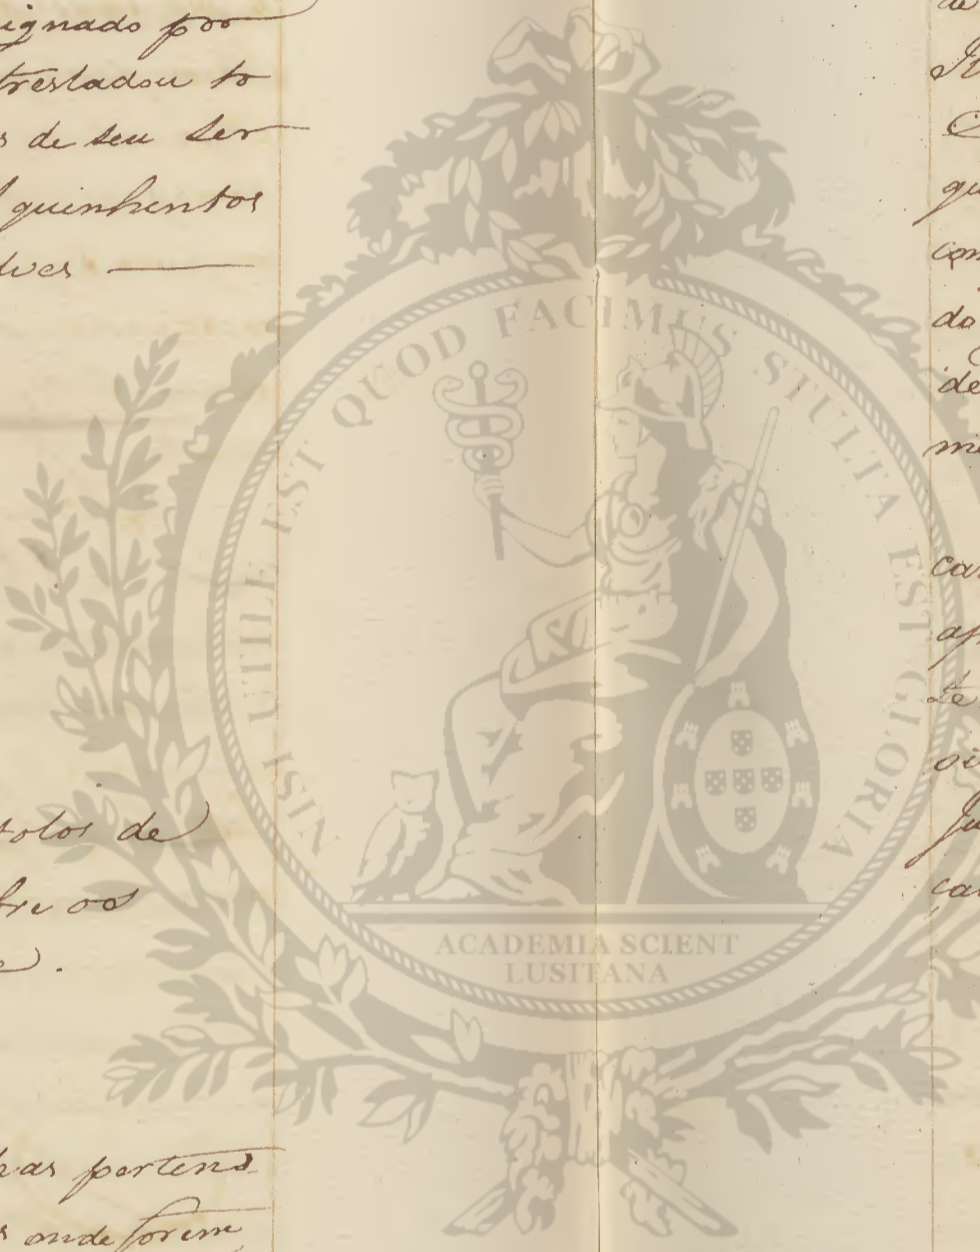 ignado por
tresladou to
s de seu ser
quinhentos
lves
tolos de
fre os
e.
has pertens
s onde forem
NISI UTILE EST QUOD FACIMUS STULTA EST GLORIA
ACADEMIA SCIENT
LUSITANA
de
qu
com
do
de
me
ca
ap
te
oi
Ju
ca